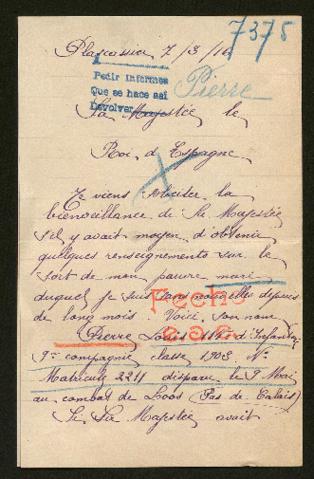 7375
Plascassier 7/3/16
Pedir informes
Que se hace así
Devolver
Pierre
Sa Majestée le
Roi d'Espagne
Je viens soliciter la
bienveillance de Sa Majestée
s'il y avait moyen d'obtenir
quelques renseignements sur le
sort de mon pauvre mari
duquel je suis sans nouvelle depuis
de long mois. Voici son nom
Fecho
Pierre Louis 114e d'Infanterie
9e compagnie classe 1903 No
Matricule 2211 disparu le 9 Mai
au combat de Loos (Pas de Calais)
Si Sa Majestée avait